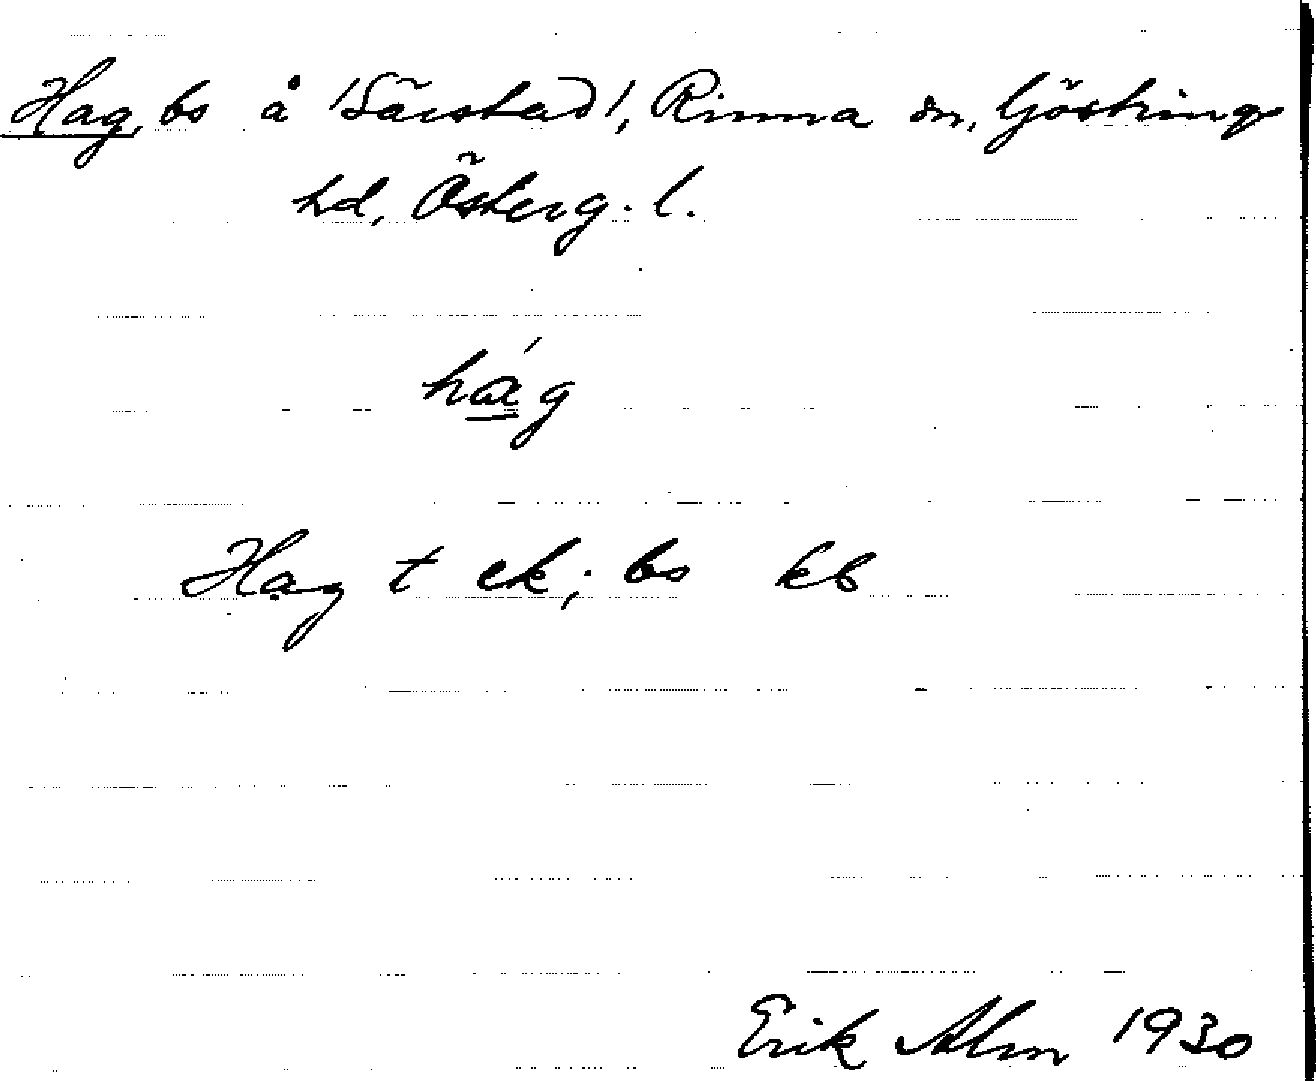 Hag, bs å 'Särstad', Rinna sn, Göstrings
hd, Österg. l.
hág
Hag t ek; bs kb
Erik Alm 1930